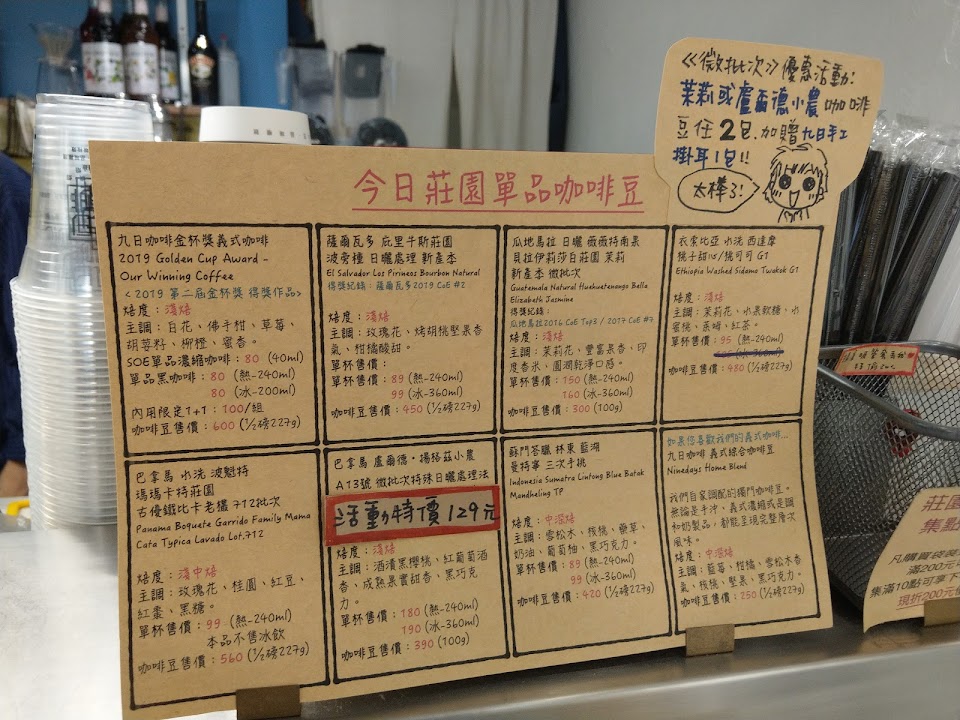 《微批次》優惠活動!
茉莉或盧爾德小農咖啡
豆任2包,加贈九日手工
掛耳1包!!
太棒了!
今日莊園單品咖啡豆
九日咖啡金杯獎義式咖啡
2019 Golden Cup Award -
Our Winning Coffee
<2019 第二屆金杯獎 得獎作品>
焙度:淺焙
主調:白花、佛手柑、草莓、
胡荽籽、柳橙、蜜香。
SOE單品濃縮咖啡:80 (40ml)
單品黑咖啡:80 (熱-240ml)
80 (冰-200ml)
內用限定1+1:100/組
咖啡豆售價:600 (1/2磅227g)
薩爾瓦多 庇里牛斯莊園
波旁種 日曬處理 新產季
El Salvador Los Pirineos Bourbon Natural
得獎紀錄:薩爾瓦多2019 CoE #2
焙度:淺焙
主調:玫瑰花、烤胡桃堅果香
氣、柑橘酸甜。
單杯售價:
89 (熱-240ml)
99 (冰-360ml)
咖啡豆售價:450 (1/2磅227g)
瓜地馬拉 日曬 薇薇特南果
貝拉伊莉莎白莊園 茉莉
新產季 微批次
Guatemala Natural Huehuetenango Bella
Elizabeth Jasmine
得獎紀錄:
瓜地馬拉2016 CoE Top3 / 2017 CoE #7
焙度:淺焙
主調:茉莉花、豐富果香、印
度香米、圓潤乾淨口感。
單杯售價:150 (熱-240ml)
160 (冰-360ml)
咖啡豆售價:300 (100g)
衣索比亞 水洗 西達摩
桃子甜心/桃可可 G1
Ethiopia Washed Sidama Twakok G1
焙度:淺焙
主調:茉莉花、水果軟糖、水
蜜桃、蔗糖、紅茶。
單杯售價:95 (熱-240ml)
咖啡豆售價:480 (1/2磅227g)
巴拿馬 水洗 波魁特
瑪瑪卡特莊園
古優鐵比卡老欉 712批次
Panama Boquete Garrido Family Mama
Cata Typica Lavado Lot.712
焙度:淺中焙
主調:玫瑰花、桂圓、紅豆、
紅棗、黑糖。
單杯售價:99 (熱-240ml)
本品不售冰飲
咖啡豆售價:560 (1/2磅227g)
巴拿馬 盧爾德・揚格茲小農
A13號 微批次特殊日曬處理法
活動特價129元
焙度:淺焙
主調:酒漬黑櫻桃、紅葡萄酒
香、成熟果實甜香、黑巧克
力。
單杯售價:180 (熱-240ml)
190 (冰-360ml)
咖啡豆售價:390 (100g)
蘇門答臘 林東 藍湖
曼特寧 三次手挑
Indonesia Sumatra Lintong Blue Batak
Mandheling TP
焙度:中深焙
主調:雪松木、核桃、藥草、
奶油、葡萄柚、黑巧克力。
單杯售價:89 (熱-240ml)
99 (冰-360ml)
咖啡豆售價:420 (1/2磅227g)
如果您喜歡我們的義式咖啡...
九日咖啡 義式綜合咖啡豆
Ninedays Home Blend
我們自家調配的獨門咖啡豆。
無論是手沖、義式濃縮或是調
和奶製品,都能呈現完整層次
風味。
焙度:中深焙
主調:藍莓、柑橘、雪松木香
氣、核桃、堅果、黑巧克力。
咖啡豆售價:250 (1/2磅227g)
莊園
集點
凡購買袋裝
滿200元
集滿10點可享下
現折200元